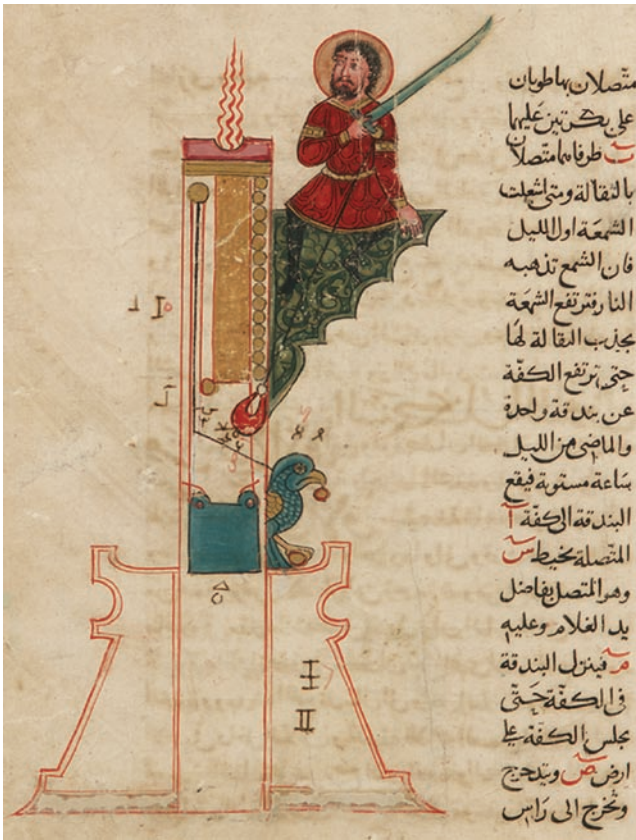 متصلان بها طويان
على بكرتين عليهما
ب طرفاهما متصلان
بالثقالة ومتى اشعلت
الشمعة اول الليل
فان الشمع تذهبه
النار فترتفع الشمعة
بجذب الثقالة لها
حتى ترتفع الكفة
عن بندقة واحدة
والماضي من الليل
ساعة مستوية فيقع
البندقة الى كفة آ
المتصلة بخيط س
وهو المتصل بفاضل
يد الغلام وعليه
م فينزل البندقة
فى الكفة حتى
يجلس الكفة على
ارض ص ويتدحرج
وتخرج الى راس